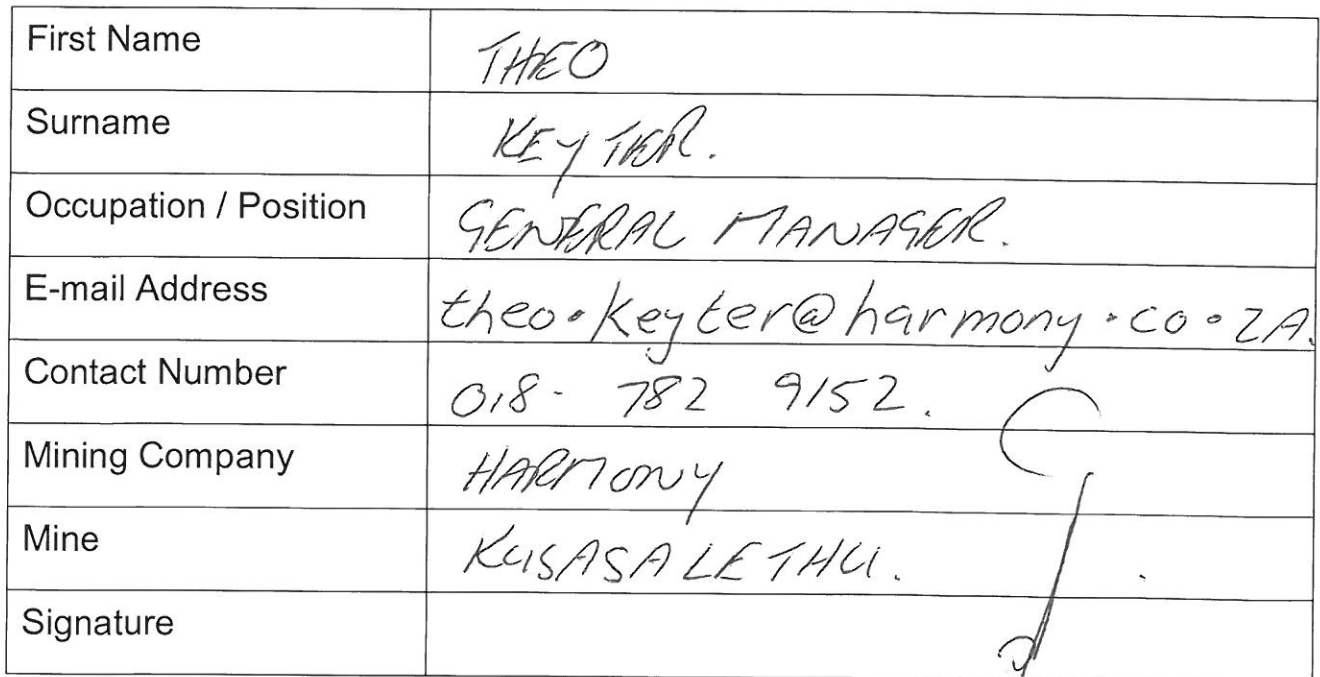 First Name THEO
Surname KEYTER.
Occupation / Position GENERAL MANAGER.
E-mail Address theo.keyter@harmony.co.ZA.
Contact Number 018- 782 9152.
Mining Company HARMONY
Mine KUSASALETHU.
Signature